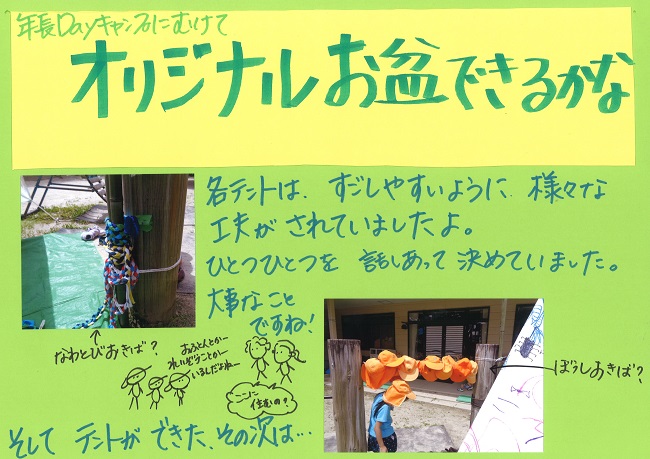 年長Dayキャンプにむけて
オリジナルお盆できるかな
各テントは、すごしやすいように、様々な
工夫がされていましたよ。
ひとつひとつを 話しあって 決めていました。
大事なこと
ですね!
なわとびおきば?
おふとんとかー
れいぞうことかー
いるしだよねー
ここに
住むの?
ぼうしおきば?
そして テントが できた、その次は…